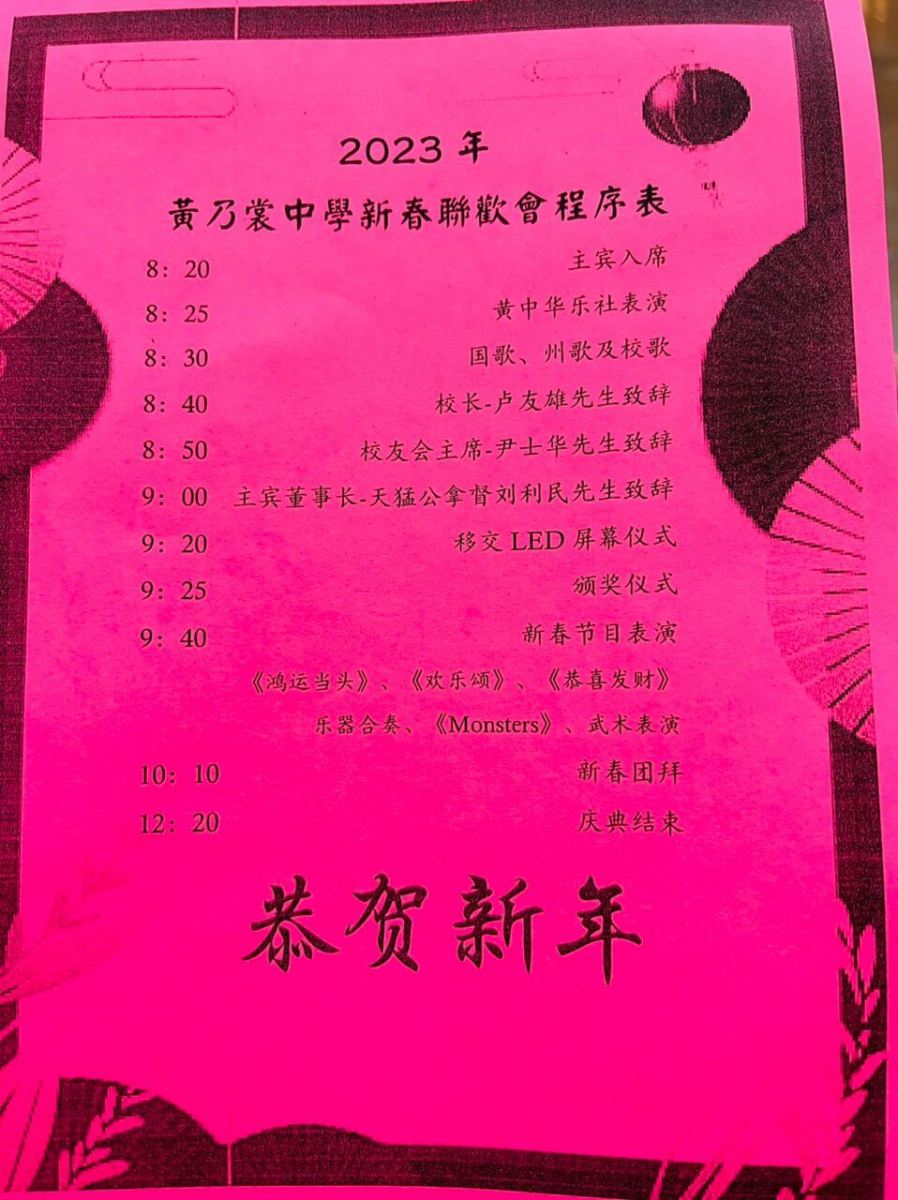 2023 年
黃乃裳中學新春聯歡會程序表
8：20 主宾入席
8：25 黄中华乐社表演
8：30 国歌、州歌及校歌
8：40 校长-卢友雄先生致辞
8：50 校友会主席-尹士华先生致辞
9：00 主宾董事长-天猛公拿督刘利民先生致辞
9：20 移交 LED 屏幕仪式
9：25 颁奖仪式
9：40 新春节目表演
《鸿运当头》、《欢乐颂》、《恭喜发财》
乐器合奏、《Monsters》、武术表演
10：10 新春团拜
12：20 庆典结束
恭贺新年